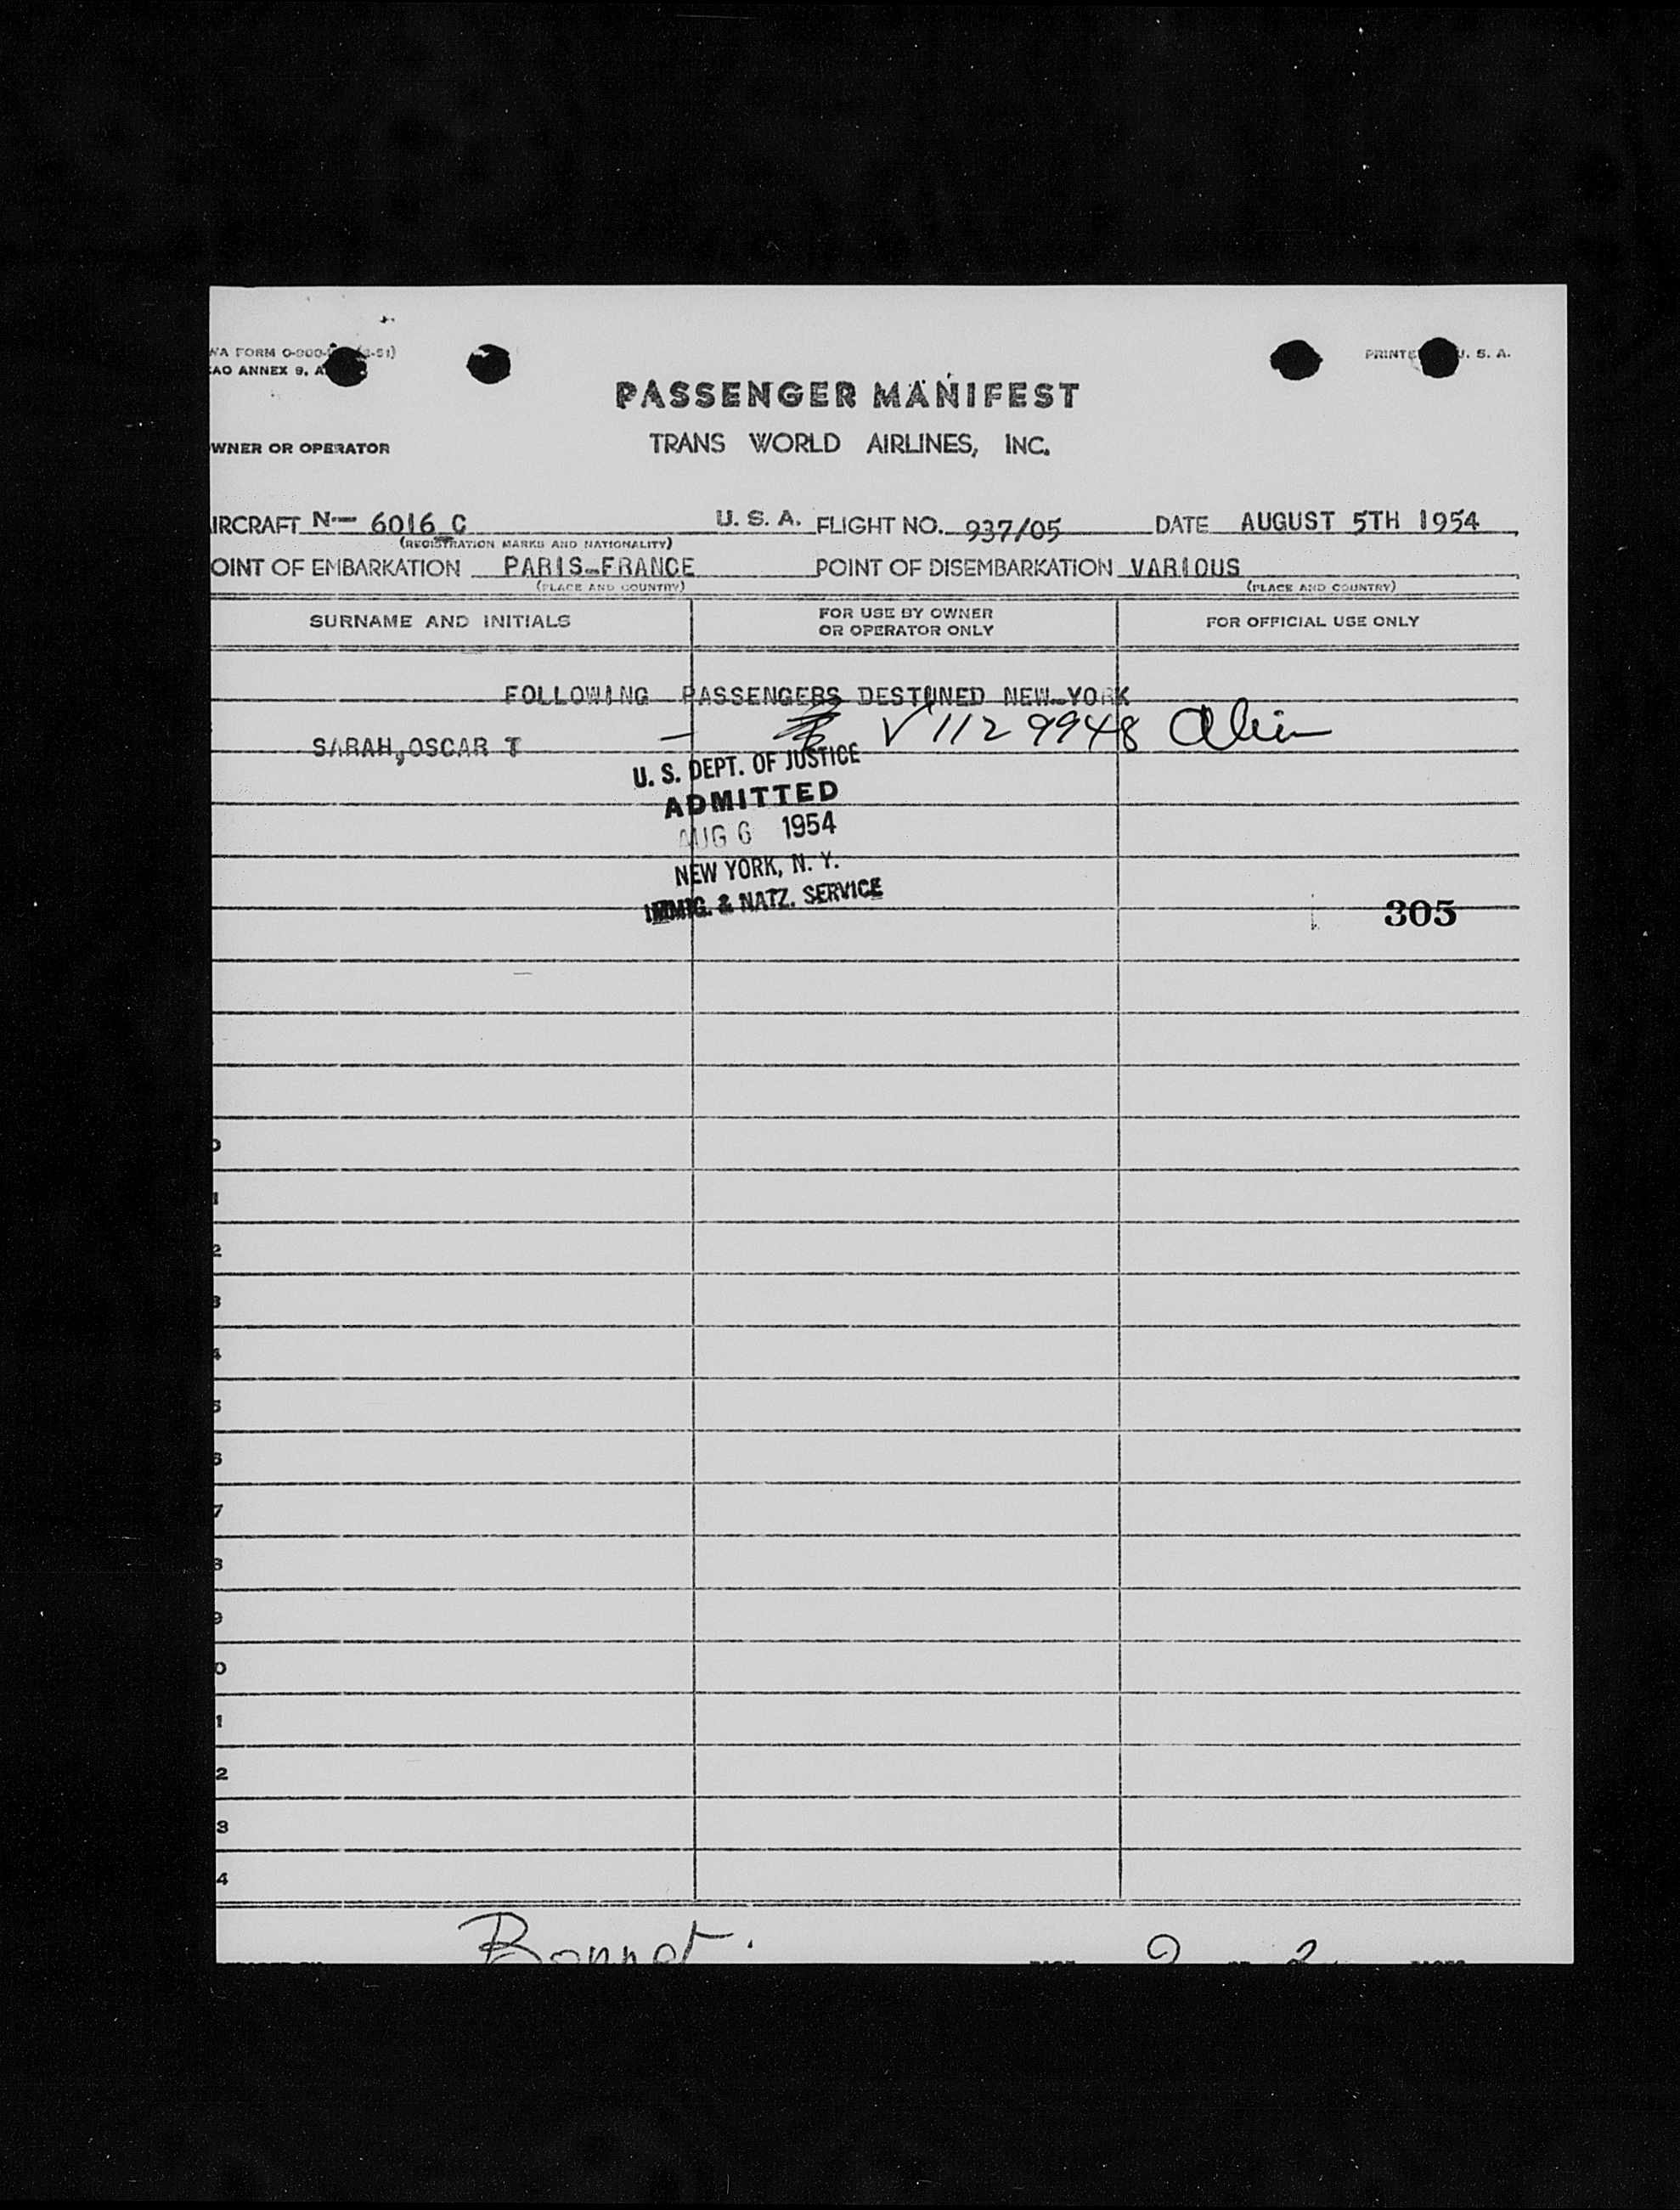 WA FORM O-900- (3-51)
CAO ANNEX 9, A
PRINTE U. S. A.
PASSENGER MANIFEST
WNER OR OPERATOR
TRANS WORLD AIRLINES, INC.
IRCRAFT N-- 6016 C U. S. A. FLIGHT NO. 937/05 DATE AUGUST 5TH 1954
(REGISTRATION MARKS AND NATIONALITY)
OINT OF EMBARKATION PARIS-FRANCE POINT OF DISEMBARKATION VARIOUS
(PLACE AND COUNTRY) (PLACE AND COUNTRY)
SURNAME AND INITIALS
FOR USE BY OWNER
OR OPERATOR ONLY
FOR OFFICIAL USE ONLY
FOLLOWING PASSENGERS DESTINED NEW-YORK
SARAH,OSCAR T - V 1129948 Alien
U. S. DEPT. OF JUSTICE
ADMITTED
AUG 6 1954
NEW YORK, N. Y.
IMMIG. & NATZ. SERVICE
305
0
1
2
3
4
5
6
7
8
9
0
1
2
3
4
Bonnet. 2 2